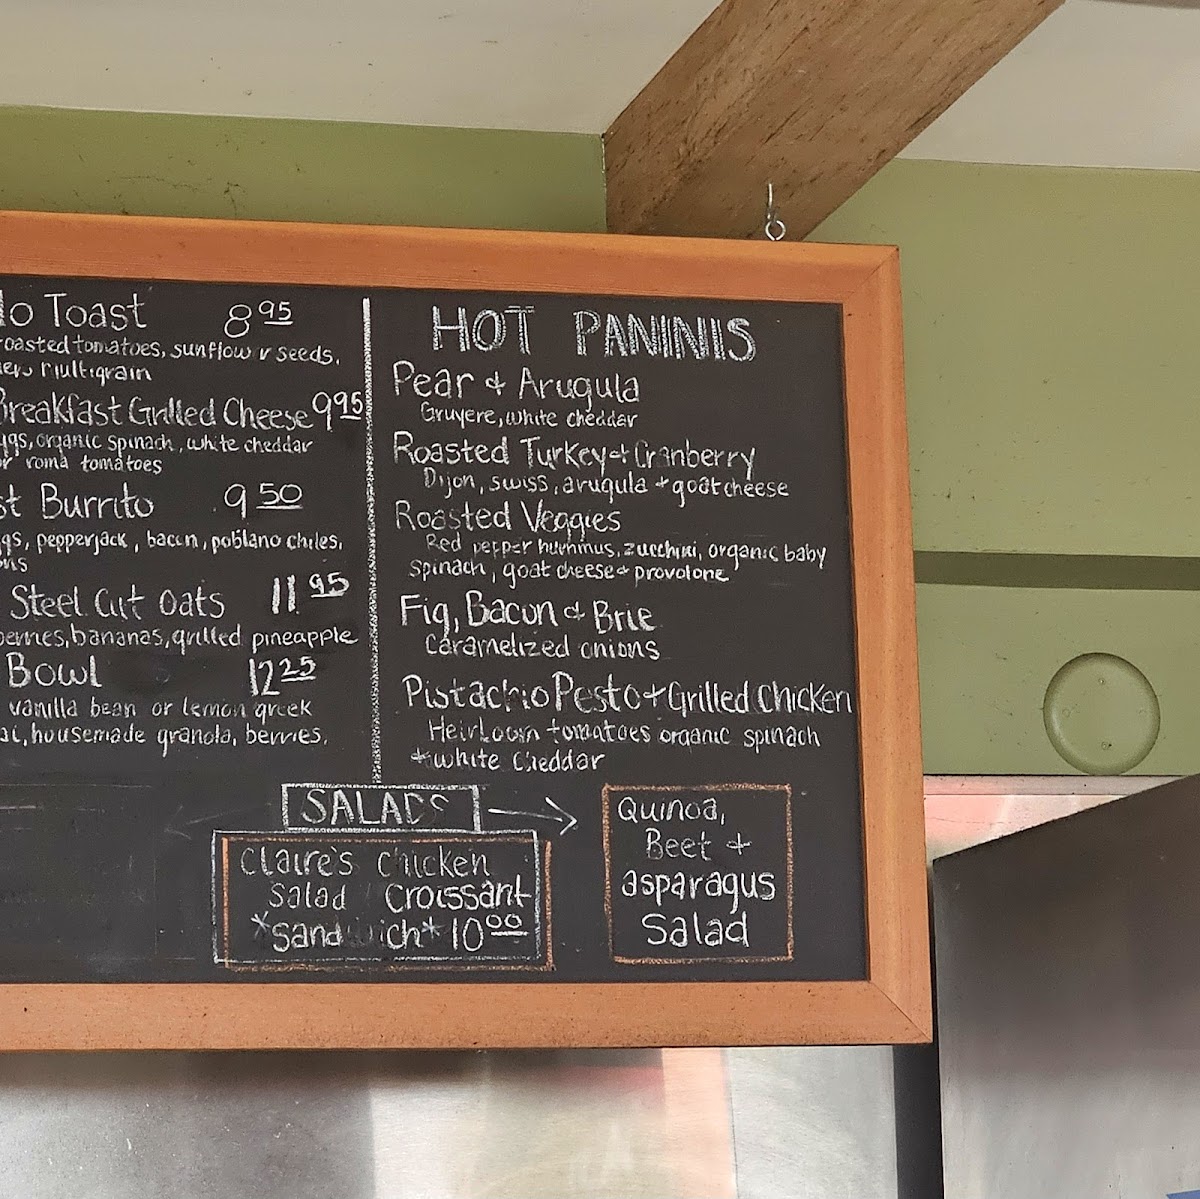 lo Toast 8 95
roasted tomatoes, sunflow r seeds,
multigrain
Breakfast Grilled Cheese 9 95
ggs, organic spinach, white cheddar
or roma tomatoes
st Burrito 9 50
ggs, pepperjack, bacon, poblano chiles,
ons
Steel Cut Oats 11 95
berries, bananas, grilled pineapple
Bowl 12 25
vanilla bean or lemon greek
ai, housemade granola, berries,
HOT PANINIS
Pear & Arugula
Gruyere, white cheddar
Roasted Turkey + Cranberry
Dijon, swiss, arugula + goat cheese
Roasted Veggies
Red pepper hummus, zucchini, organic baby
spinach, goat cheese & provolone
Fig, Bacon & Brie
Caramelized onions
Pistachio Pesto + Grilled Chicken
Heirloom tomatoes organic spinach
+ white cheddar
SALADS →
Claire's Chicken
Salad Croissant
*Sandwich* 10 00
Quinoa,
Beet +
asparagus
Salad